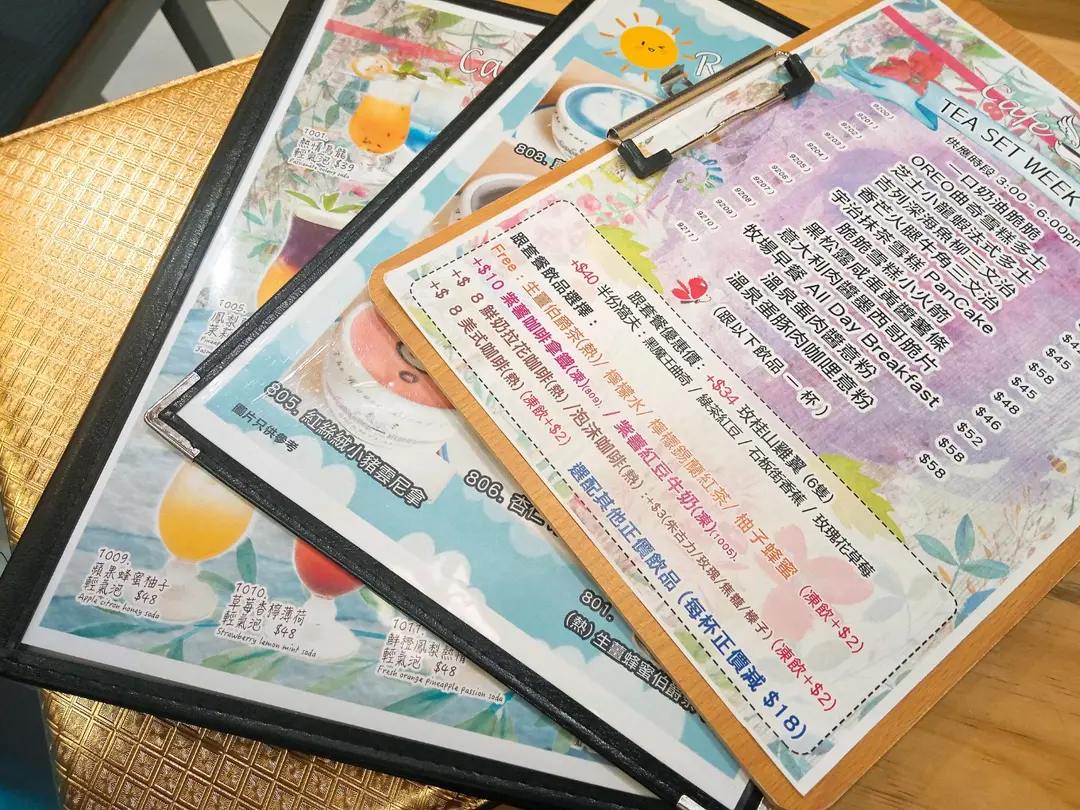 Ca
1001.
熱情烏龍
輕氣泡 $39
1005.
1009.
蘋果蜂蜜柚子
輕氣泡 $48
Apple citron honey soda
1010.
草莓香檸薄荷
輕氣泡 $48
Strawberry lemon mint soda
1011.
鮮橙鳳梨熱情
輕氣泡 $48
Fresh orange pineapple passion soda
R
808.
805. 紅絲絨小豬雲尼拿
圖片只供參考
806. 杏仁
801.
(熱)生薑蜂蜜伯爵
Cafe
TEA SET WEEK
供應時段 3:00 - 6:00pm
9200) 一口奶油脆脆
9201) OREO曲奇雪糕多士
9202) 芝士小龍蝦法式多士
9203) 吉列深海魚柳三文治
9204) 香芒火腿牛角三文治
9205) 宇治抹茶雪糕 PanCake
9206) 脆脆雪糕小火箭
9207) 黑松露咸蛋黃醬薯條
9208) 意大利肉醬墨西哥脆片
9209) 牧場早餐 All Day Breakfast
9210) 溫泉蛋肉醬意粉
9211) 溫泉蛋豚肉咖哩意粉
(跟以下飲品一杯)
$45
$58
$45
$48
$46
$52
$58
$58
跟套餐優惠價: +$34 玫桂山雞翼 (6隻)
+$40 半份窩夫: 黑魔王曲奇 / 綠茶紅豆 / 石板街香蕉 / 玫瑰花草莓
跟套餐飲品選擇:
Free: 生薑伯爵茶(熱)/ 檸檬水/ 檸檬錫蘭紅茶/ 柚子蜂蜜 (凍飲+$2)
+$10 紫薯咖啡拿鐵(凍)(809) / 紫薯紅豆牛奶(凍)(1005)
+$ 8 鮮奶拉花咖啡(熱) /泡沫咖啡(熱):+$3(朱古力/玫瑰/焦糖/榛子) (凍飲+$2)
+$ 8 美式咖啡(熱) (凍飲+$2)
選配其他正價飲品 (每杯正價減 $18)